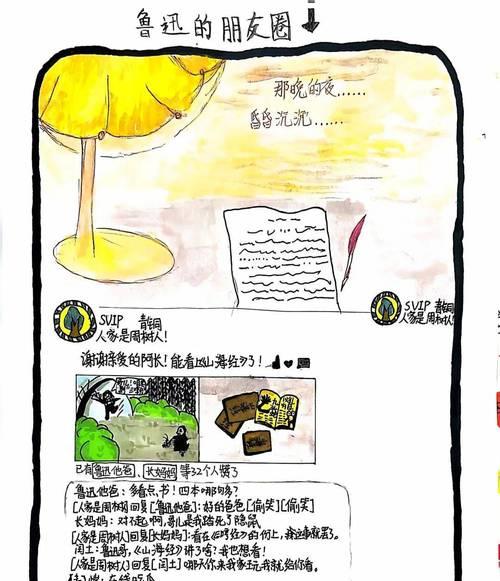 鲁迅的朋友圈
那晚的夜……
昏昏沉沉……
SVIP 青铜
人家是周树人!
SVIP 青铜
人家是周树人!
谢谢亲爱的阿长!能看《山海经》了!
已有鲁迅他爸、长妈妈 等32个人赞了
鲁迅他爸:多看点书!四本哪句多?
[人家是周树人]回复[鲁迅他爸]:好的爸爸[偷笑][偷笑]
长妈妈:对不起啊,哥儿是我踏死了隐鼠
[人家是周树人]回复[长妈妈]:看在《山海经》的份上,我这事就罢了。
闰土:鲁迅哥,《山海经》讲了啥?我也想看!
[人家是周树人]回复[闰土]哪天你来我家玩我就给你看。